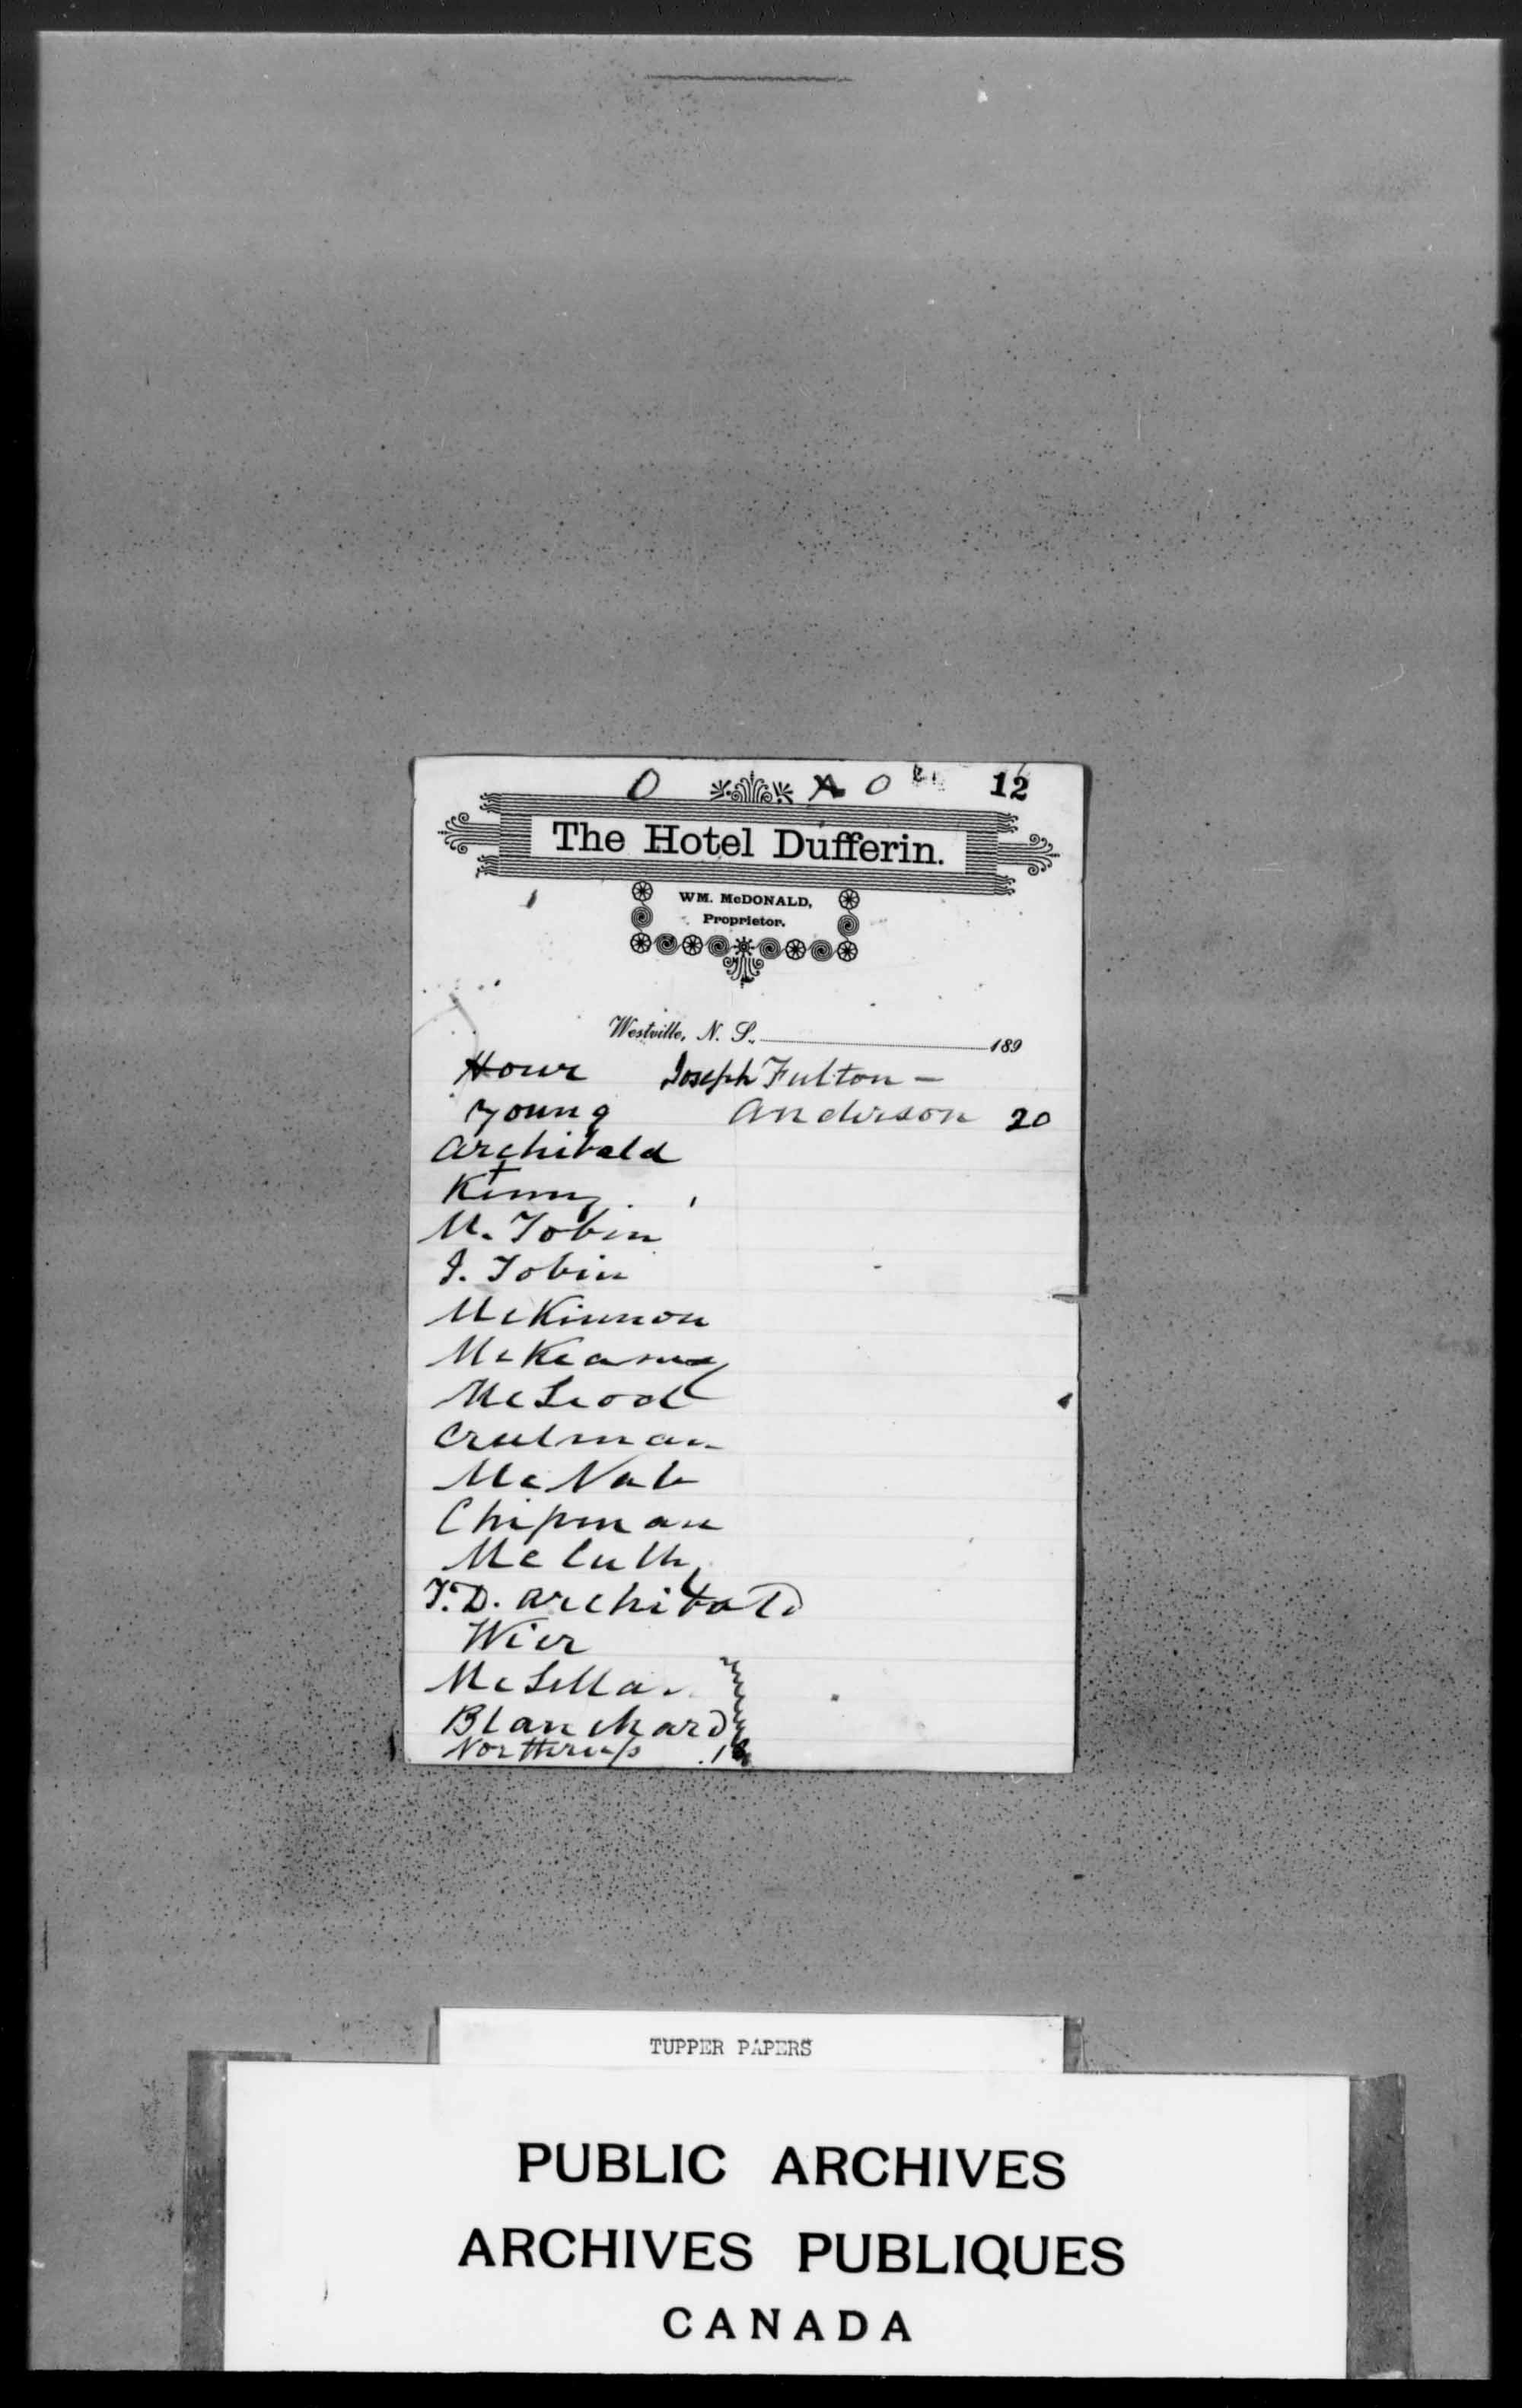 O A O 12
The Hotel Dufferin.
WM. McDONALD,
Proprietor.
Westville, N. S., 189
Howe Joseph Fulton —
Young Anderson 20
Archibald
Kenny
M. Tobin
J. Tobin
McKinnon
McKeagney
McLeod
Creelman
McNab
Chipman
McCully
T.D. Archibald
Wier
McLellan
Blanchard
Northrup 18
TUPPER PAPERS
PUBLIC ARCHIVES
ARCHIVES PUBLIQUES
CANADA